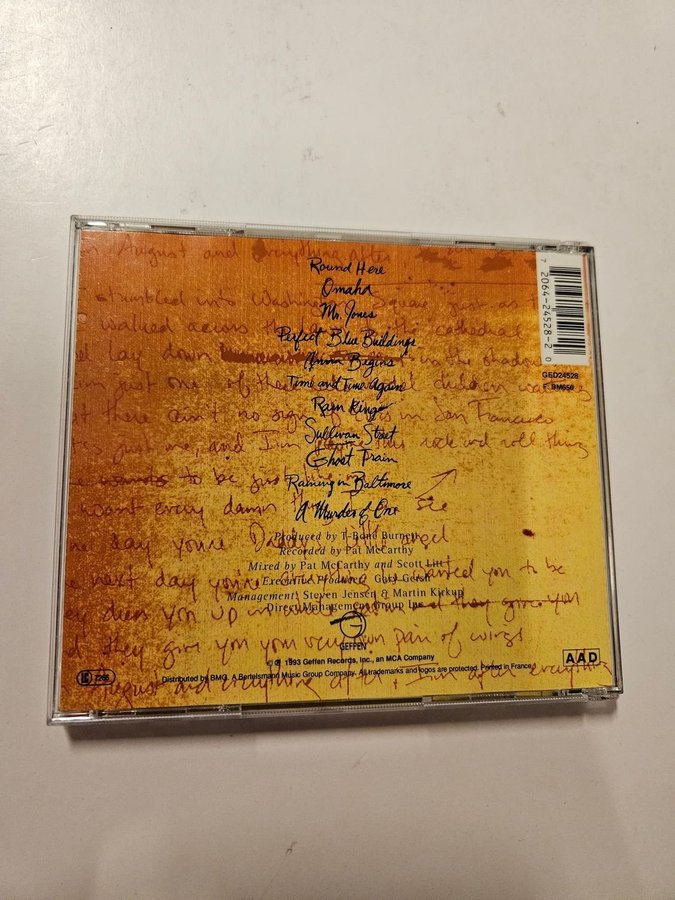 August and Everything After
Round Here
Omaha
Mr. Jones
stumbled into Washington Square just as
walked across the cathedral
Perfect Blue Buildings
lay down in the shadow
Anna Begins
just one of these children
Time and Time Again
there ain't no sign in San Francisco
Rain King
just me, and I'm this rock and roll thing
Sullivan Street
Ghost Train
to be just
Raining in Baltimore
want every damn see
A Murder of One
Produced by T-Bone Burnett
day you're Daddy's angel
Recorded by Pat McCarthy
Mixed by Pat McCarthy and Scott Litt
next day you're wanted you to be
Executive Producer: Gary Gersh
Management: Steven Jensen & Martin Kirkup
dress you up in they give you
Direct Management Group Inc.
G
GEFFEN
they give you your very own pair of wings
℗© 1993 Geffen Records, Inc., an MCA Company
Distributed by BMG. A Bertelsmann Music Group Company. All trademarks and logos are protected. Printed in France.
August and everything after I'm after everything
7 20064-24528-2 0
GED24528
F: BM650
AAD
7266